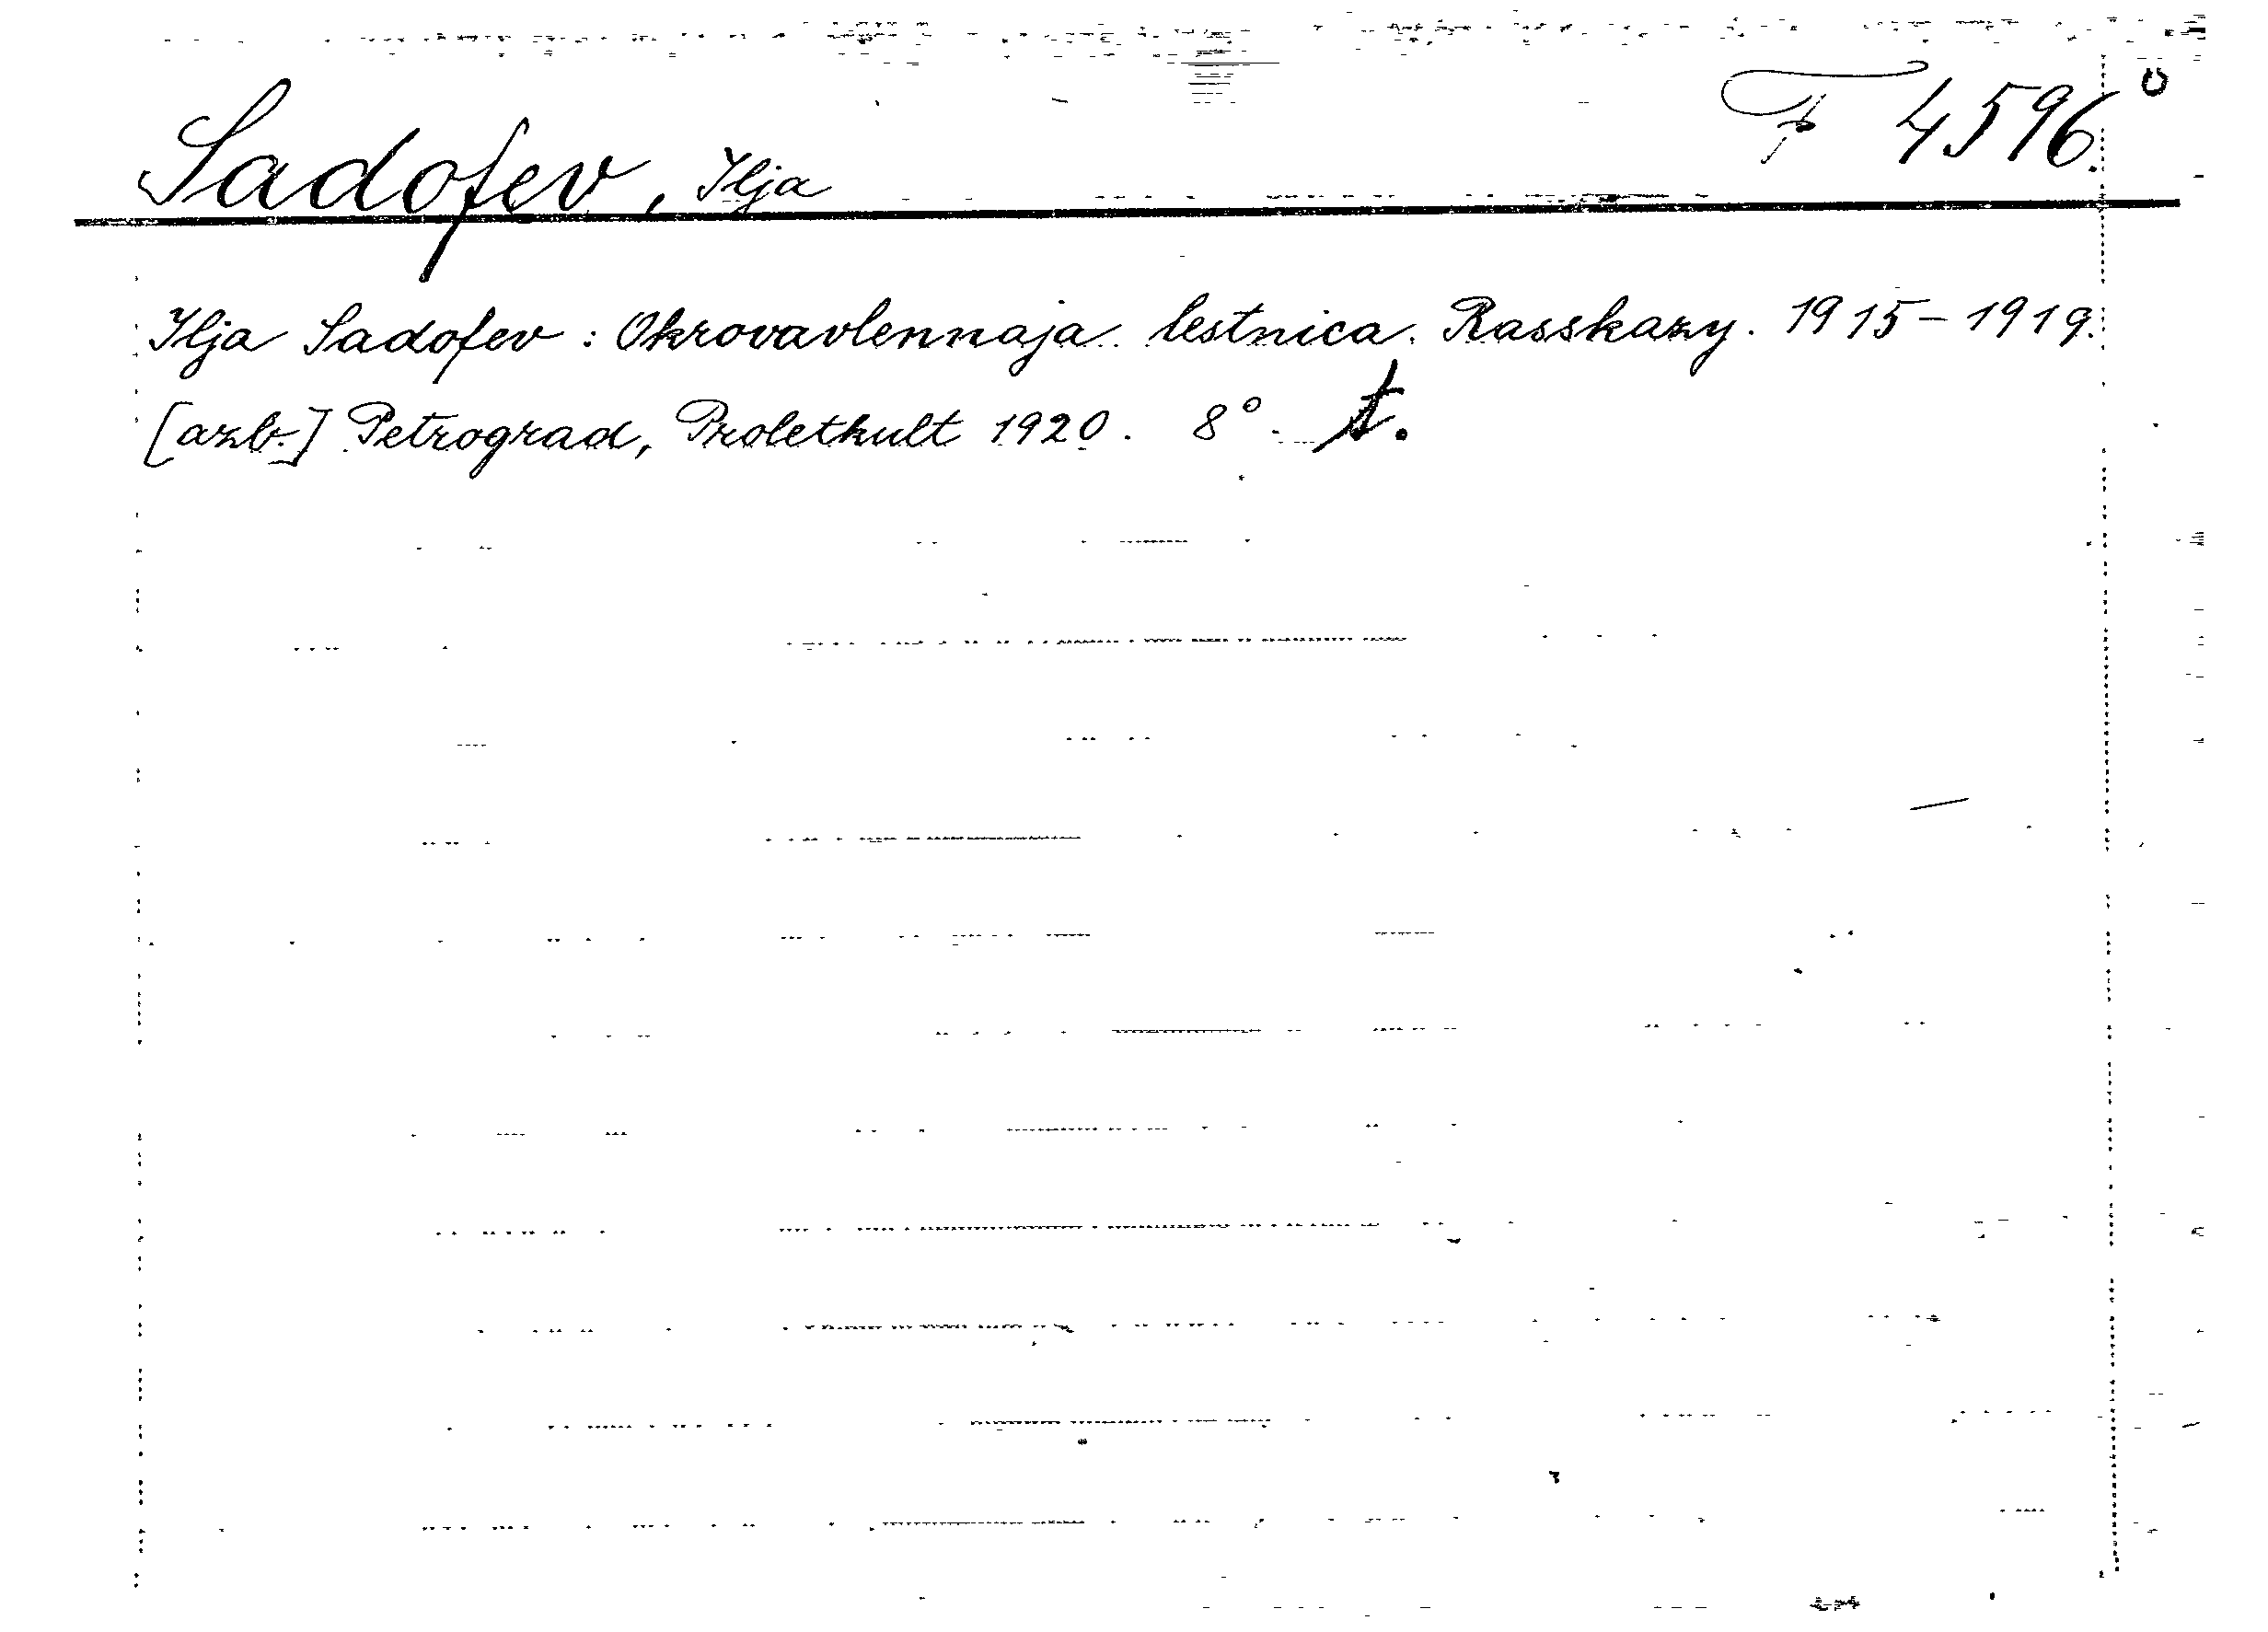 Sadofev, Ilja
F 4596.
Ilja Sadofev: Okrovavlennaja lestnica. Rasskazy. 1915-1919.
[azb.] Petrograd, Proletkult 1920. 8° t.